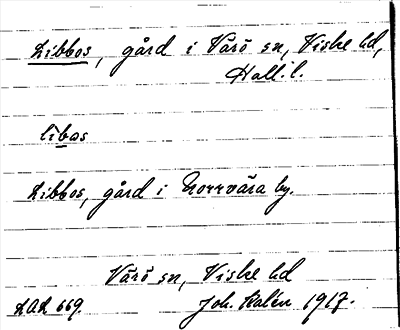 Libbos, gård i Värö sn, Viske hd,
Hall. l.
libas
Libbos, gård i Norrvära by.
Värö sn, Viske hd
LAL 669. Joh. Kalén 1917.